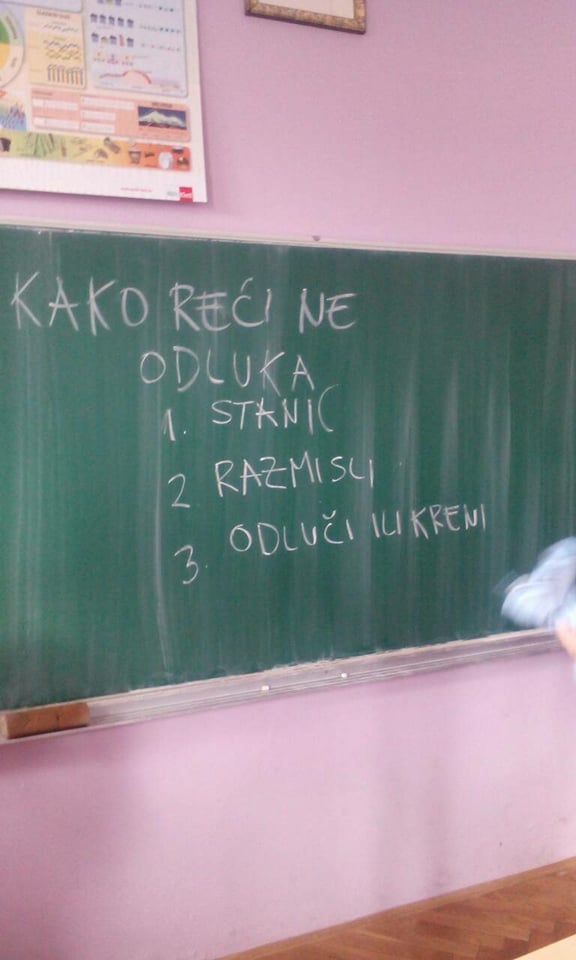 KAKO REĆI NE
ODLUKA
1. STANIC
2 RAZMISLI
3. ODLUČI ILI KRENI
Klett